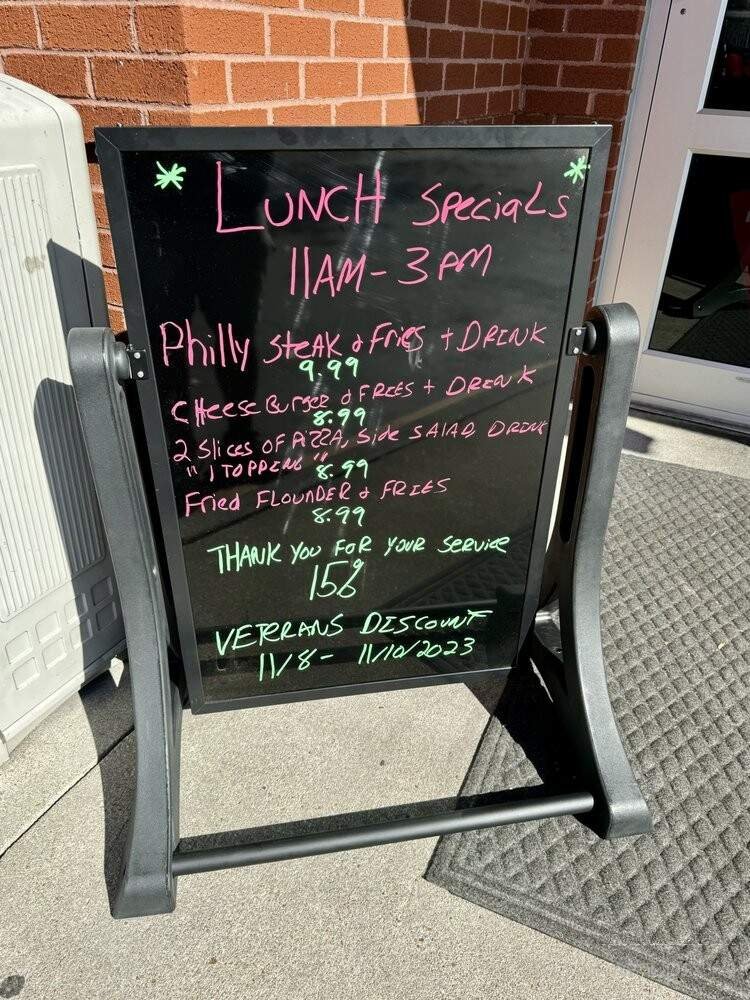 * LUNCH SPECIALS *
11AM - 3PM
Philly STEAK & FRIES + DRINK
9.99
CHEESE BURGER & FRIES + DRINK
8.99
2 Slices OF PIZZA, Side SALAD, DRINK
" 1 TOPPING " 8.99
Fried FLOUNDER & FRIES
8.99
THANK YOU FOR YOUR SERVICE
15%
VETERANS DISCOUNT
11/8 - 11/10/2023